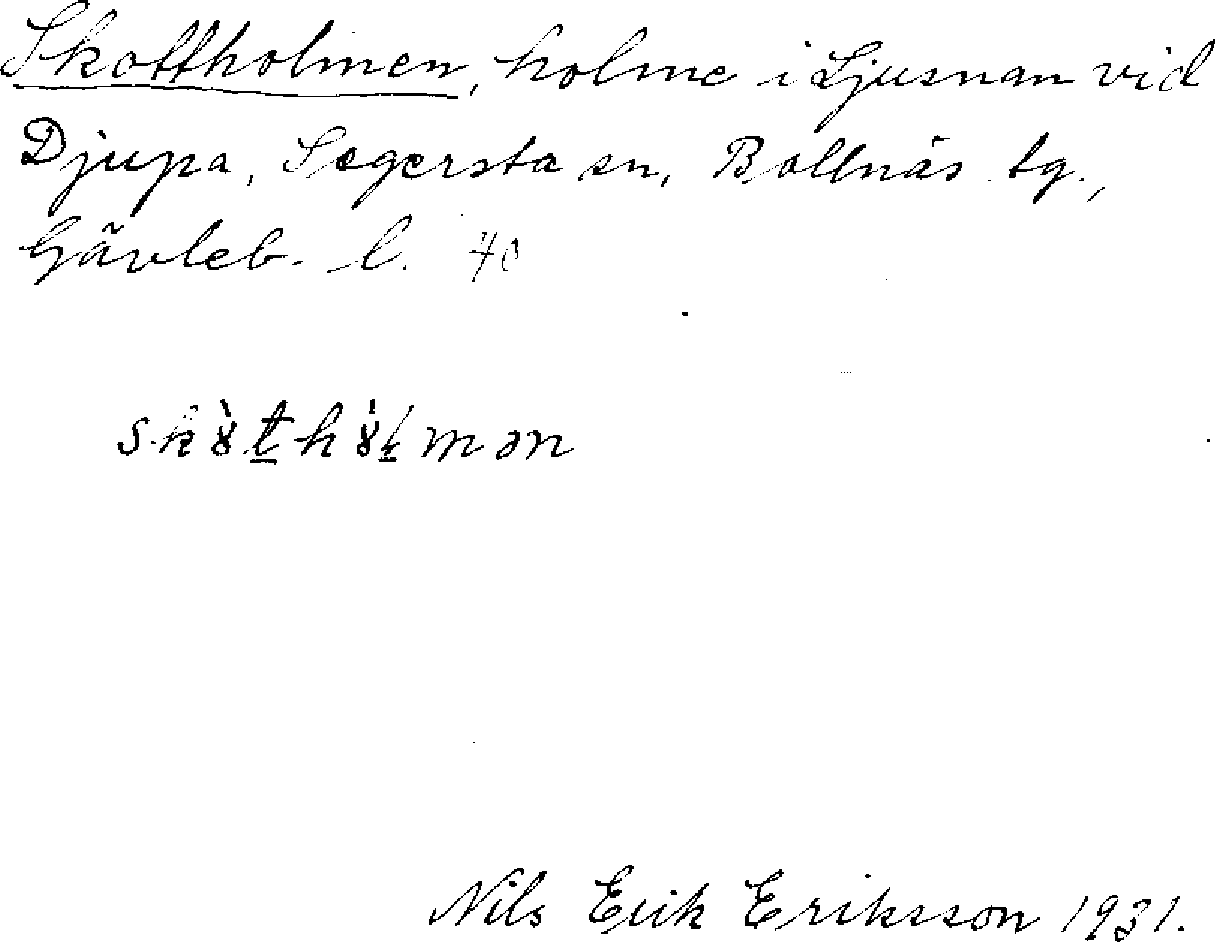 Skottholmen, holme i Ljusnan vid
Djupa, Segersta sn, Bollnäs tg.,
Gävleb. l. 40
Nils Erik Eriksson 1931.